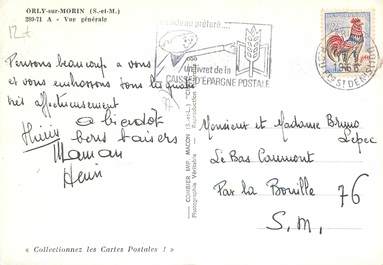 ORLY-sur-MORIN (S.-et-M.)
289-71 A - Vue générale
12 F
Pensons beaucoup a vous
et vous embrassons tous les quatre
très affectueusement
a bientôt
bons baisers
Maman
Henri
cadeau préféré...
un livret de la
CAISSE D'ÉPARGNE POSTALE
ST DENIS
COMBIER IMP. MACON (S.-et-L.)
Photographie Véritable - Reproduction
Monsieur et Madame Bruno
Lepec
Le Bas Caumont
Par la Bouille 76
S.M.
« Collectionnez les Cartes Postales ! »